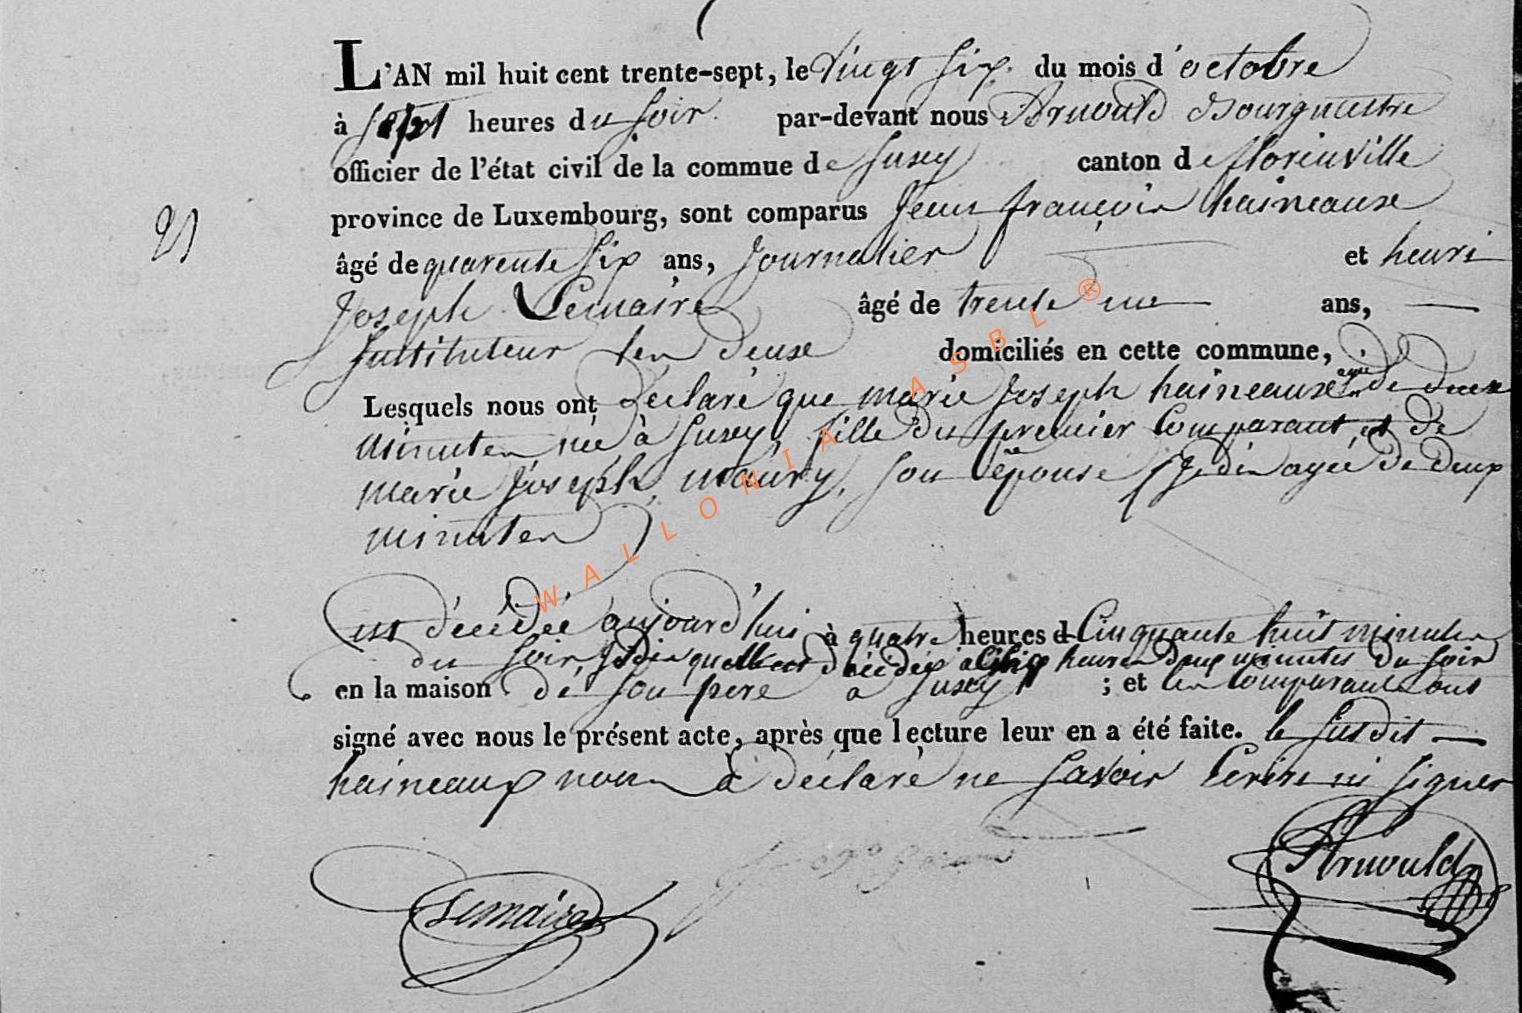 L'AN mil huit cent trente-sept, le vingt six du mois d'octobre
à sept heures du soir par-devant nous Arnould Bourgmestre
officier de l'état civil de la commue de Suxy canton de florenville
province de Luxembourg, sont comparus Jean françois haineaux
21
âgé de quarente six ans, Journalier et henri
Joseph Lemaire âgé de trente un ans,
Instituteur les deux domiciliés en cette commune,
Lesquels nous ont déclaré que marie Joseph haineaux agée de deux
minutes née à Suxy, fille du premier Comparant et de
marie Joseph maury, son épouse Je dis agée de deux
minutes
est décédée aujourd'hui à quatre heures d Cinquante huit minutes
du soir, Je dis quelle est décédée à cinq heures deux minutes du soir
en la maison de son pere à Suxy ; et les comparants ont
signé avec nous le présent acte, après que lecture leur en a été faite. le susdit
haineaux nous à déclaré ne savoir Ecrire ni signer
Lemaire
Arnould
WALLONIA ASBL ®